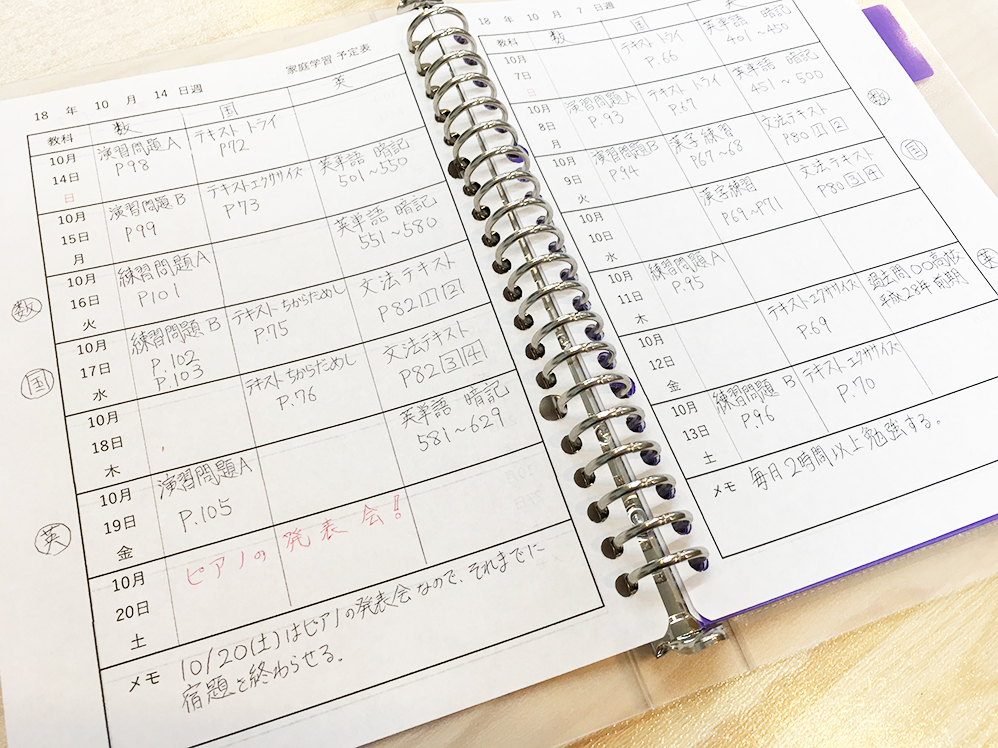 家庭学習 予定表
18 年 10 月 14 日週
教科 数 国 英
10月 演習問題A テキスト トライ
14日 P98 P72
日
10月 演習問題B テキストエクササイズ 英単語 暗記
15日 P99 P73 501~550
月
10月 練習問題A 英単語 暗記
16日 P101 551~580
火
10月 練習問題B テキストちからだめし 文法テキスト
17日 P.102 P.75 P82 1 2
水 P.103
10月 テキストちからだめし 文法テキスト
18日 P.76 P82 3 4
木
10月 演習問題A 英単語 暗記
19日 P.105 581~629
金
10月 ピアノの発表会!
20日
土
メモ 10/20(土)はピアノの発表会なので、それまでに
宿題を終わらせる。
数
国
英
18 年 10 月 7 日週
教科 数 国 英
10月 テキスト トライ 英単語 暗記
7日 P.66 401~450
日
10月 演習問題A テキスト トライ 英単語 暗記
8日 P.93 P.67 451~500
月
10月 演習問題B 漢字練習 文法テキスト
9日 P.94 P67~68 P80 1 2
火
10月 漢字練習 文法テキスト
10日 P69~P71 P80 3 4
水
10月 練習問題A
11日 P.95
木
10月 テキストエクササイズ 過去問〇〇高校
12日 P.69 平成28年 前期
金
10月 練習問題B テキストエクササイズ
13日 P.96 P.70
土
メモ 毎日2時間以上勉強する。
数
国
英